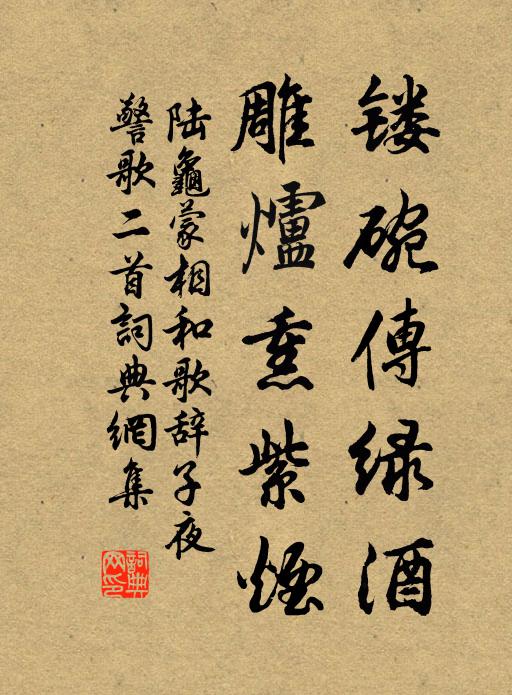 镂碗傳绿酒
雕爐熏紫煙
陆龜蒙相和歌辞子夜
警歌二首詞典網集
詞典
网印